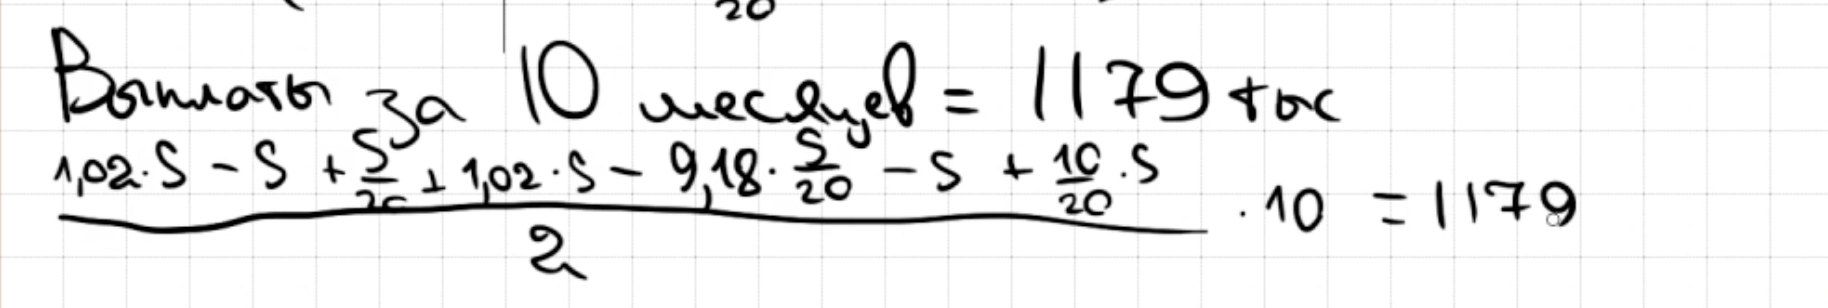 20
Выплаты за 10 месяцев = 1179 тыс
(1,02·S − S + S/20 + 1,02·S − 9,18·S/20 − S + 10/20·S)/2 · 10 = 1179